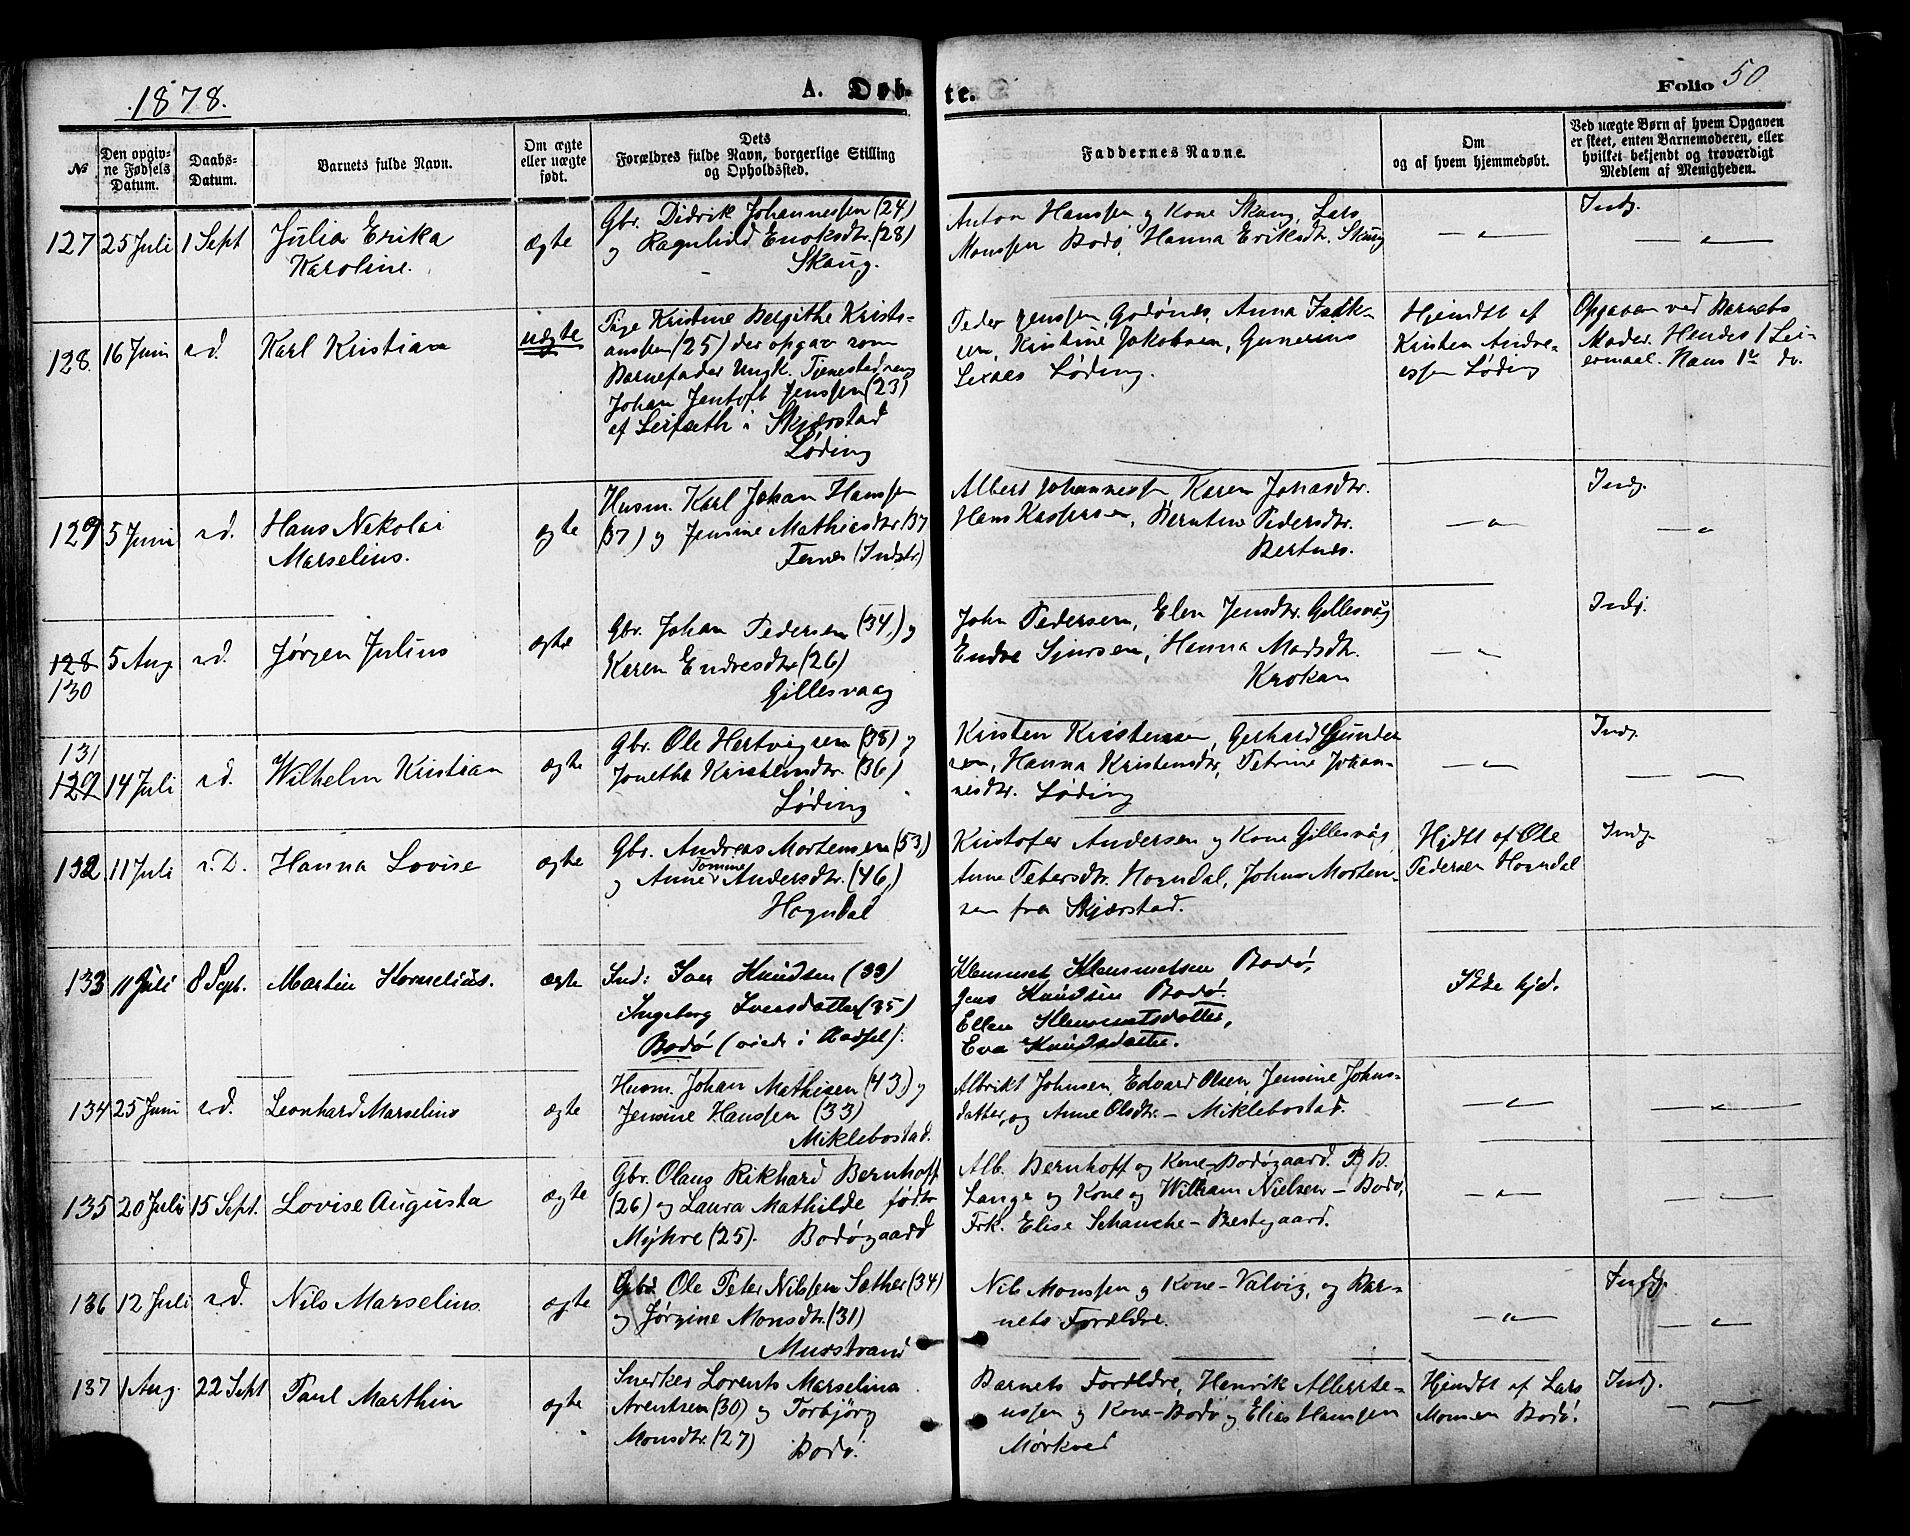 1878.
A. Døbte.
Folio 50.
№
Den opgivne Fødsels Datum.
Daabs-Datum.
Barnets fulde Navn.
Om ægte eller uægte født.
Dets Forældres fulde Navn, borgerlige Stilling og Opholdssted.
Faddernes Navne.
Om og af hvem hjemmedøbt.
Ved uægte Børn af hvem Opgaven er skeet, enten Barnemoderen, eller hvilket bekjendt og troværdigt Medlem af Menigheden.
127 25 Juli 1 Sept
Julia Erika
Karoline.
ægte
Gbr. Didrik Johannessen (24)
og Ragnhild Enoksdtr. (28)
Skaug.
Anton Hanssen og Kone Skaug, Lars
Monssen Bodø, Hanna Eriksdtr. Skaug
Indj.
128. 16 Juni s.d.
Karl Kristian
uægte
Pige Kristine Bergithe Kristi-
anssen (25) der opgav som
Barnefader Ungk. Tjenestedreng
Johan Jentoft Jenssen (23)
af Leifseth i Skjærstad
Løding
Peder Jenssen Godønes, Anna Isak-
sen, Kristine Jakobsen, Gunerius
Løding.
Hjemdt af
Kristen Andre-
assen Løding
Opgaven ved Barnets
Moder. Hendes 1 Lei-
ermaal. Hans 1te do.
129 5 Juni s.d.
Hans Nikolai
Marselius.
ægte
Husm. Karl Johan Hanssen
(37) og Jensine Mathiasdtr (37
Fenes (Indstr)
Albert Johannessen, Karen Jonasdtr.
Hans Kaspersen, Berntine Pedersdtr.
Bertnes.
Indj.
128
130
5 Aug s.d.
Jørgen Julius
ægte
Gbr. Johan Pedersen (34,) og
Karen Endresdtr (26)
Gillesvaag
John Pedersen, Elen Jensdtr. Gillesvåg
Endre Sjursen, Hanna Madsdtr.
Krokan
Indj.
131
129
14 Juli s.d.
Wilhelm Kristian
ægte
Gbr. Ole Hertvigsen (38) og
Jonetha Kristensdtr. (36)
Løding
Kristen Kristensen, Gerhard Gunder
sen, Hanna Kristensdtr, Petrine Johan-
nesdtr. Løding
Indj.
132 11 Juli s.D.
Hanna Lovise
ægte
Gbr. Andreas Mortensen (53,)
og Anne Tomine Andersdtr. (46,)
Hogndal
Kristofer Andersen og Kone Gillesvåg
Anne Petersdtr. Hogndal, Johns Morten-
sen fra Skjærstad.
Hjdt af Ole
Pedersen Hogndal
Indj.
133 11 Juli 8 Sept.
Martin Kornelius.
ægte
Ind: Iver Knudsen (33)
Ingeborg Iversdatter (35)
Bodø (viede i Hadsel).
Klemmet Klemmetsen Bodø,
Jens Knudsen Bodø.
Ellen Klemmetsdatter,
Eva Knudsdatter.
Ikke hjd.
134 25 Juni s.d.
Leonhard Marselius
ægte
Husm. Johan Mathisen (43) og
Jensine Hanssen (33)
Miklebostad.
Albrikt Johnsen, Edvard Olsen, Jensine Johns-
datter, og Anne Olsdtr. - Miklebostad.
135 20 Juli 15 Sept.
Lovise Augusta
ægte
Gbr. Olaus Rikhard Bernhoff
(26) og Laura Mathilde født
Myhre (25). Bodøgaard
Alb. Bernhoff og Kone - Bodøgaard. B
Lange og Kone og William Nielsen - Bodø,
Frk. Elise Schanche - Prestegaard.
136 12 Juli s.d.
Nils Marselius
ægte
Gbr Ole Peter Nilssen Sæther (34)
og Jørgine Monsdtr. (31)
Musstrand
Nils Monssen og Kone - Valvig, og Bar-
nets Forældre.
Indj.
137 1 Aug. 22 Sept
Paul Marthin
ægte
Snedker Lorents Marselius
Arentsen (30) og Torbjørg
Monsdtr. (27) Bodø.
Barnets Forældre, Henrik Alberte-
ussen og Kone - Bodø og Elias Hanssen
Mørkved
Hjemdt af Lars
Monsen Bodø.
Indj.